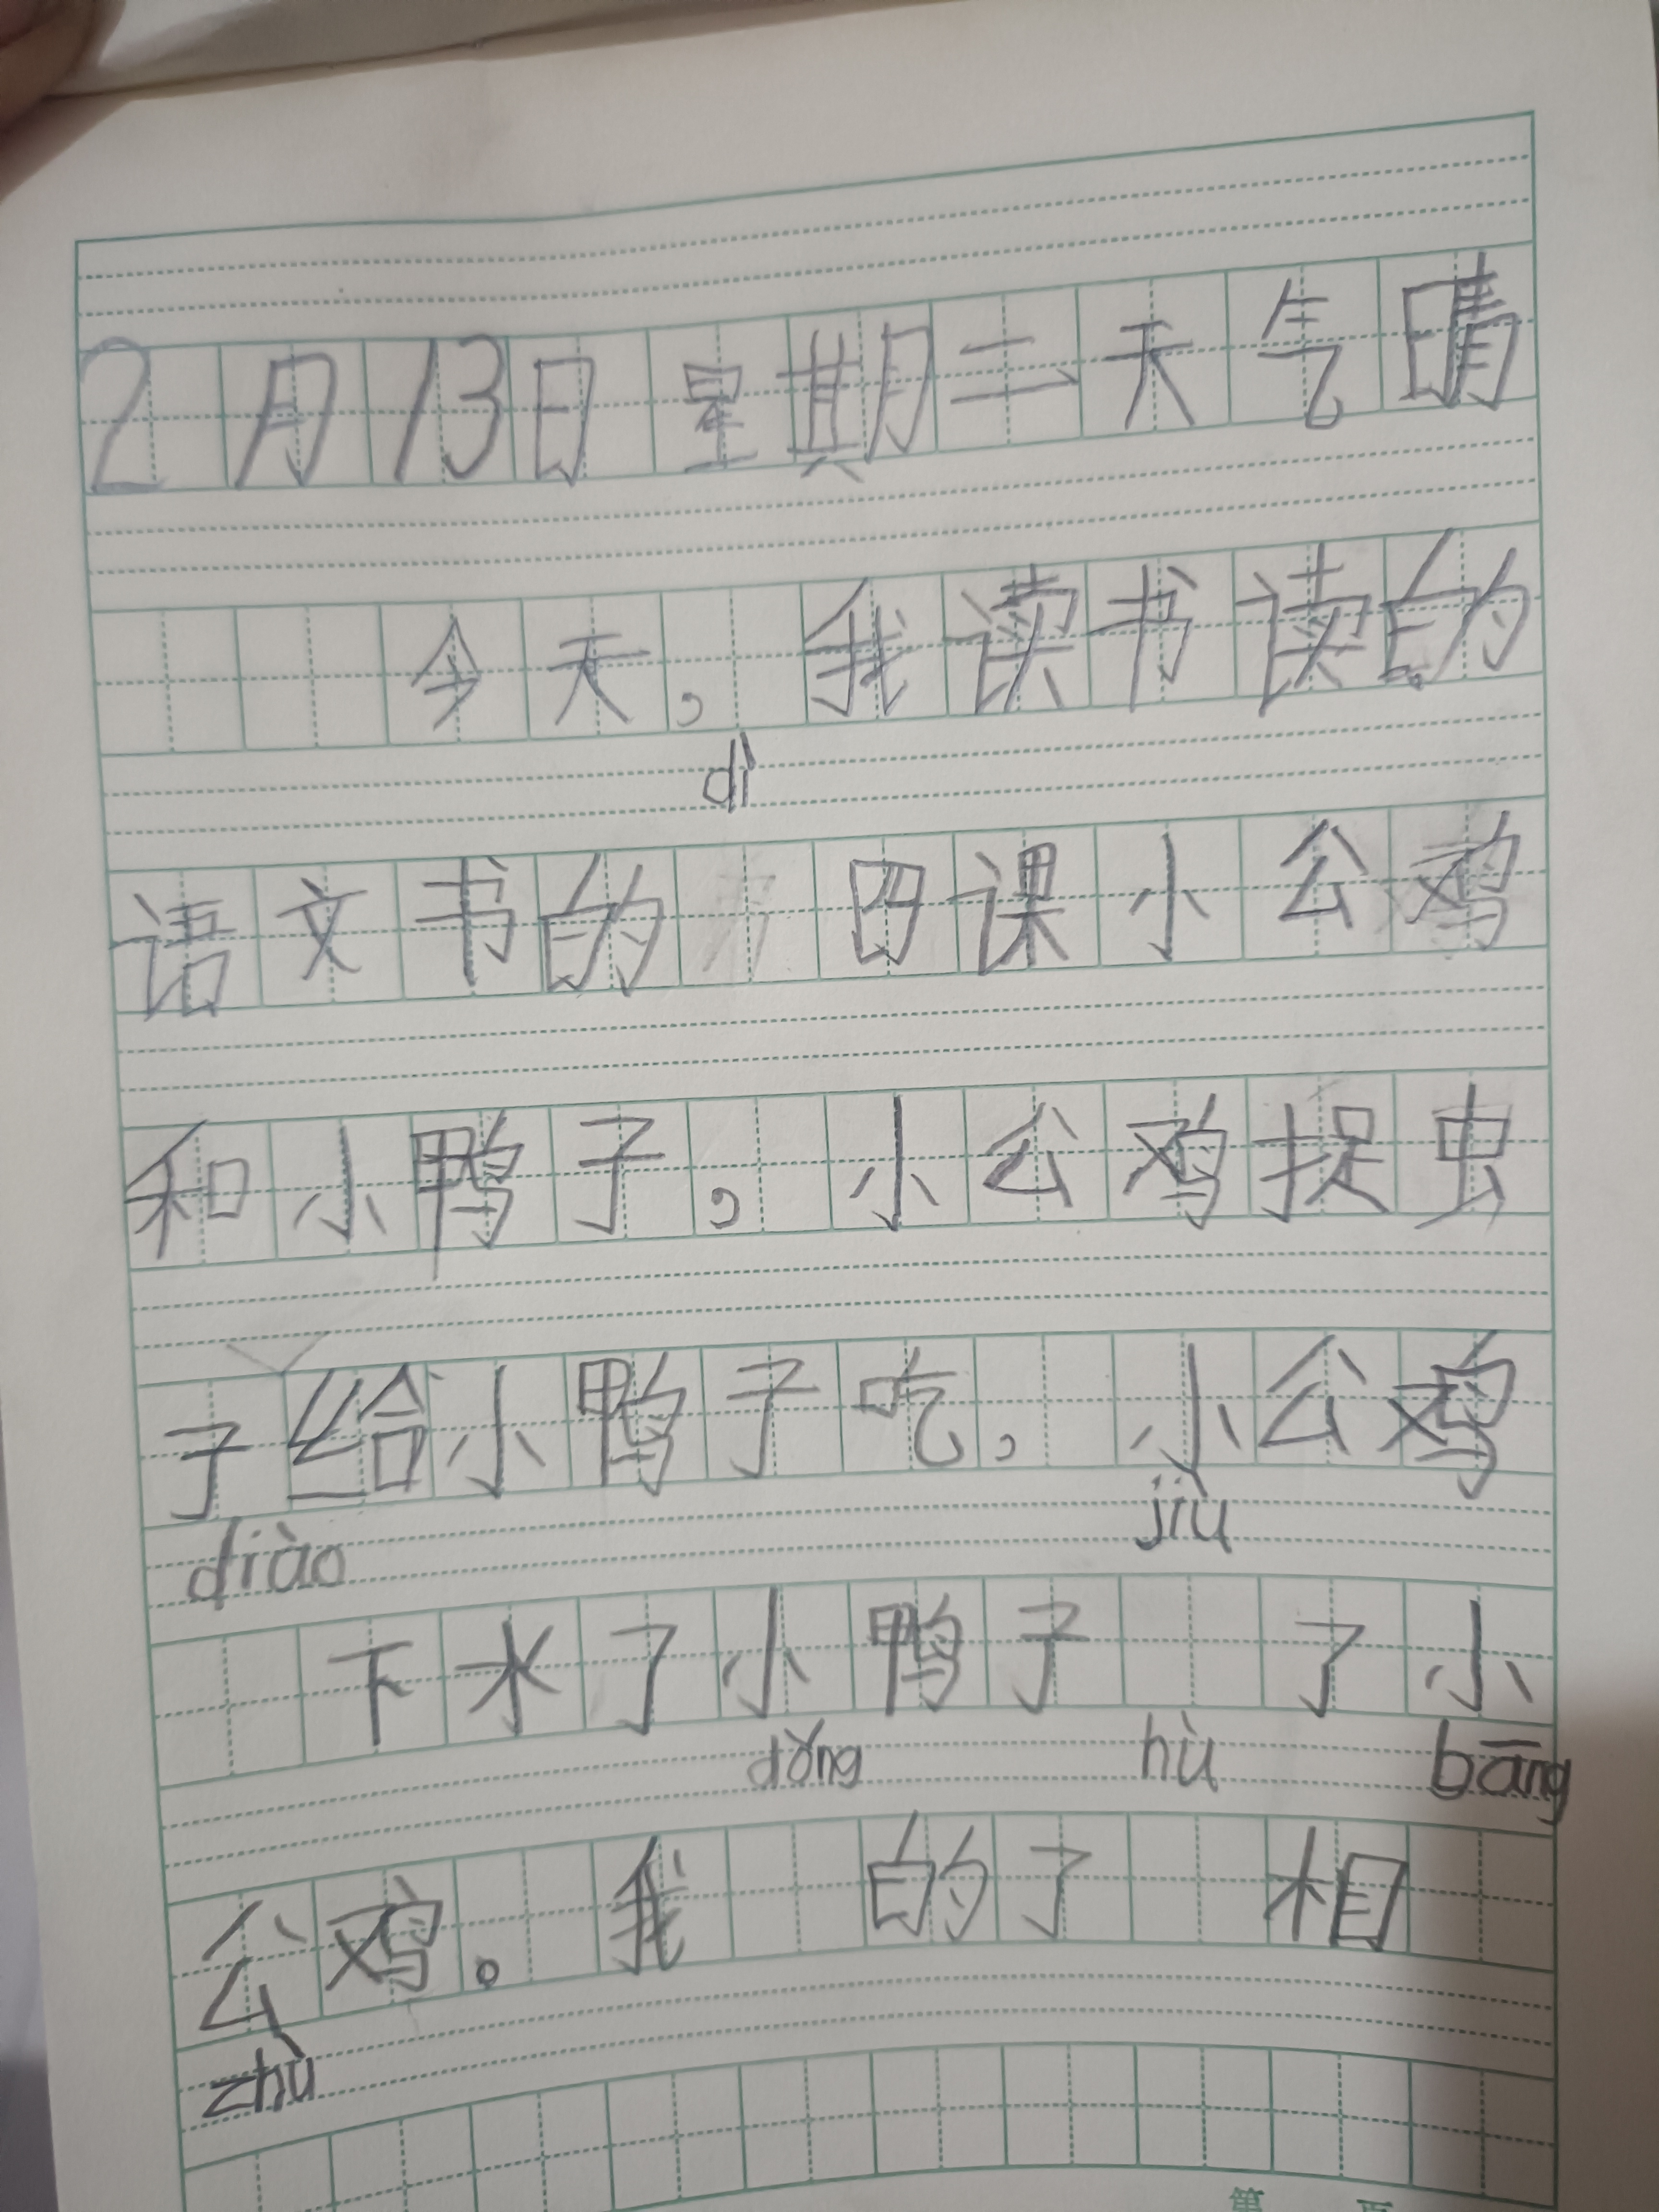 2月13日星期二天气晴
今天，我读书读的
dì
语文书的 四课小公鸡
和小鸭子，小公鸡捉虫
子给小鸭子吃，小公鸡
diào jiù
下水了小鸭子 了小
dǒng hù bāng
公鸡。我 的了 相
zhù
第 页